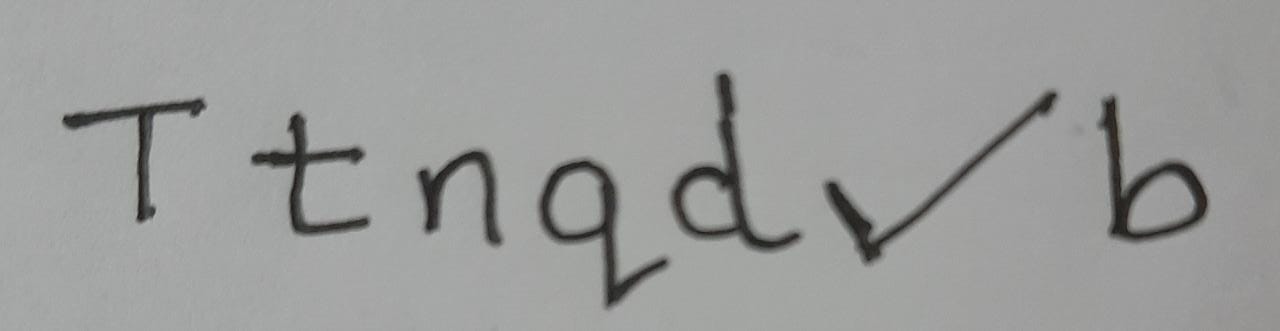 T t n q d ✓ b